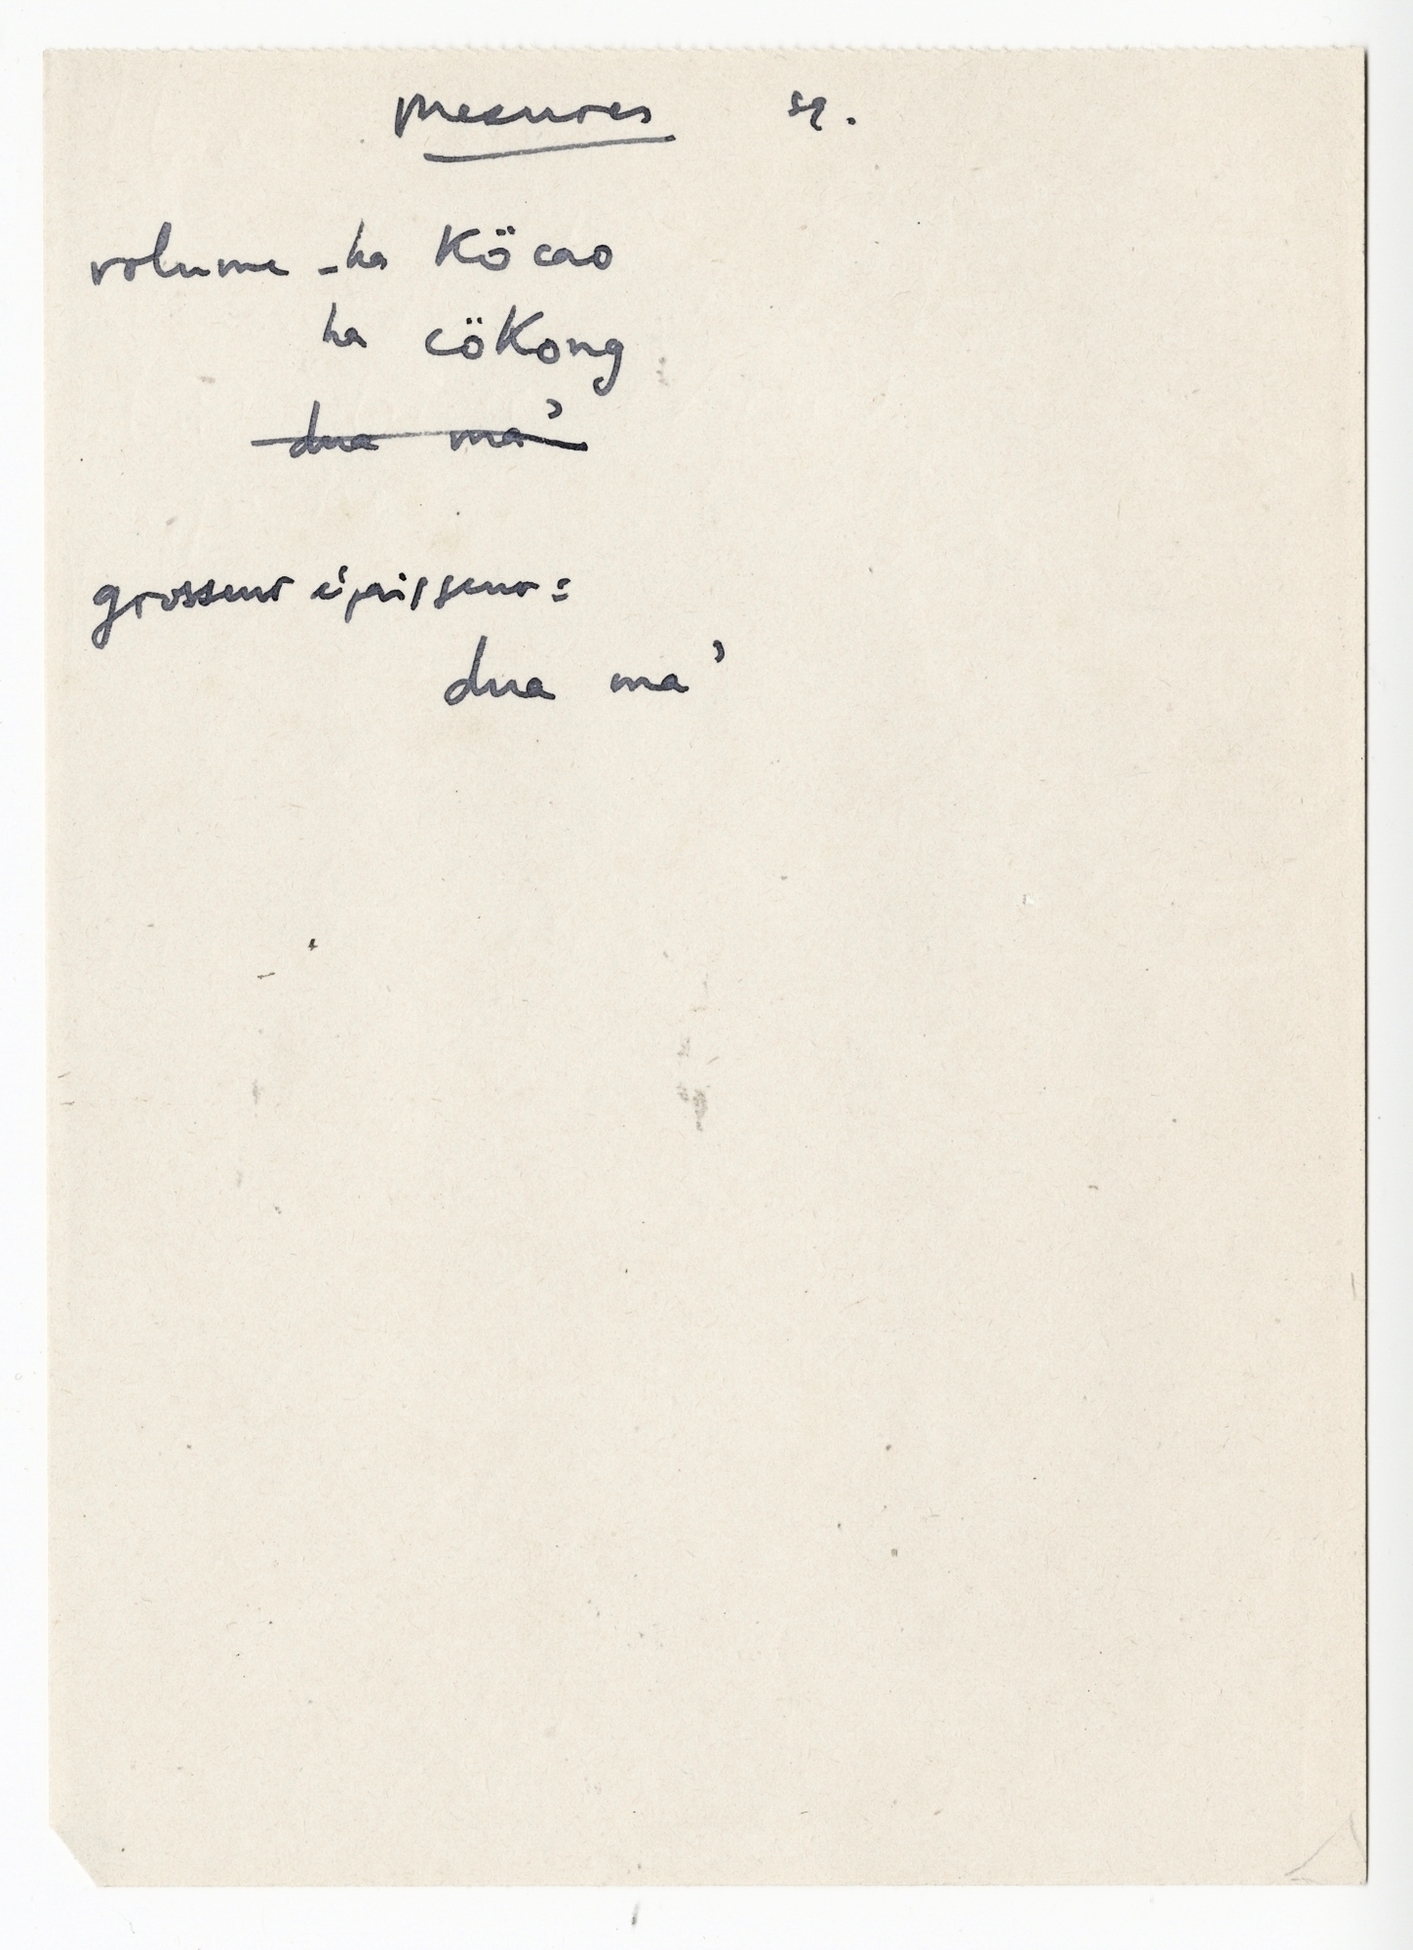 Mesures sq.
volume - ha Köcao
ha cöKong
dua ma'
grosseur épaisseur =
dua ma'